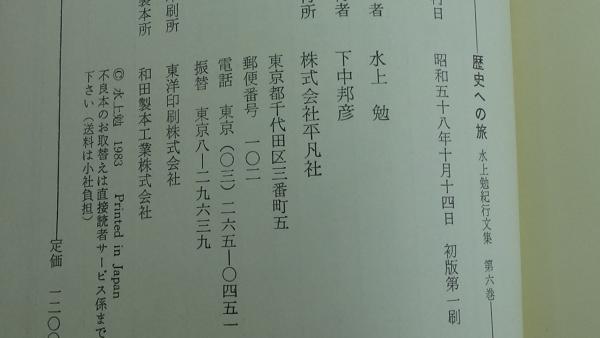 歴史への旅 水上勉紀行文集 第六巻
行日 昭和五十八年十月十四日 初版第一刷
者 水上 勉
行者 下中邦彦
行所 株式会社平凡社
東京都千代田区三番町五
郵便番号 一〇二
電話 東京(〇三)二六五―〇四五一
振替 東京八―二九六三九
印刷所 東洋印刷株式会社
製本所 和田製本工業株式会社
© 水上勉 1983 Printed in Japan
不良本のお取替えは直接読者サービス係まで
下さい(送料は小社負担)
定価 一二〇〇